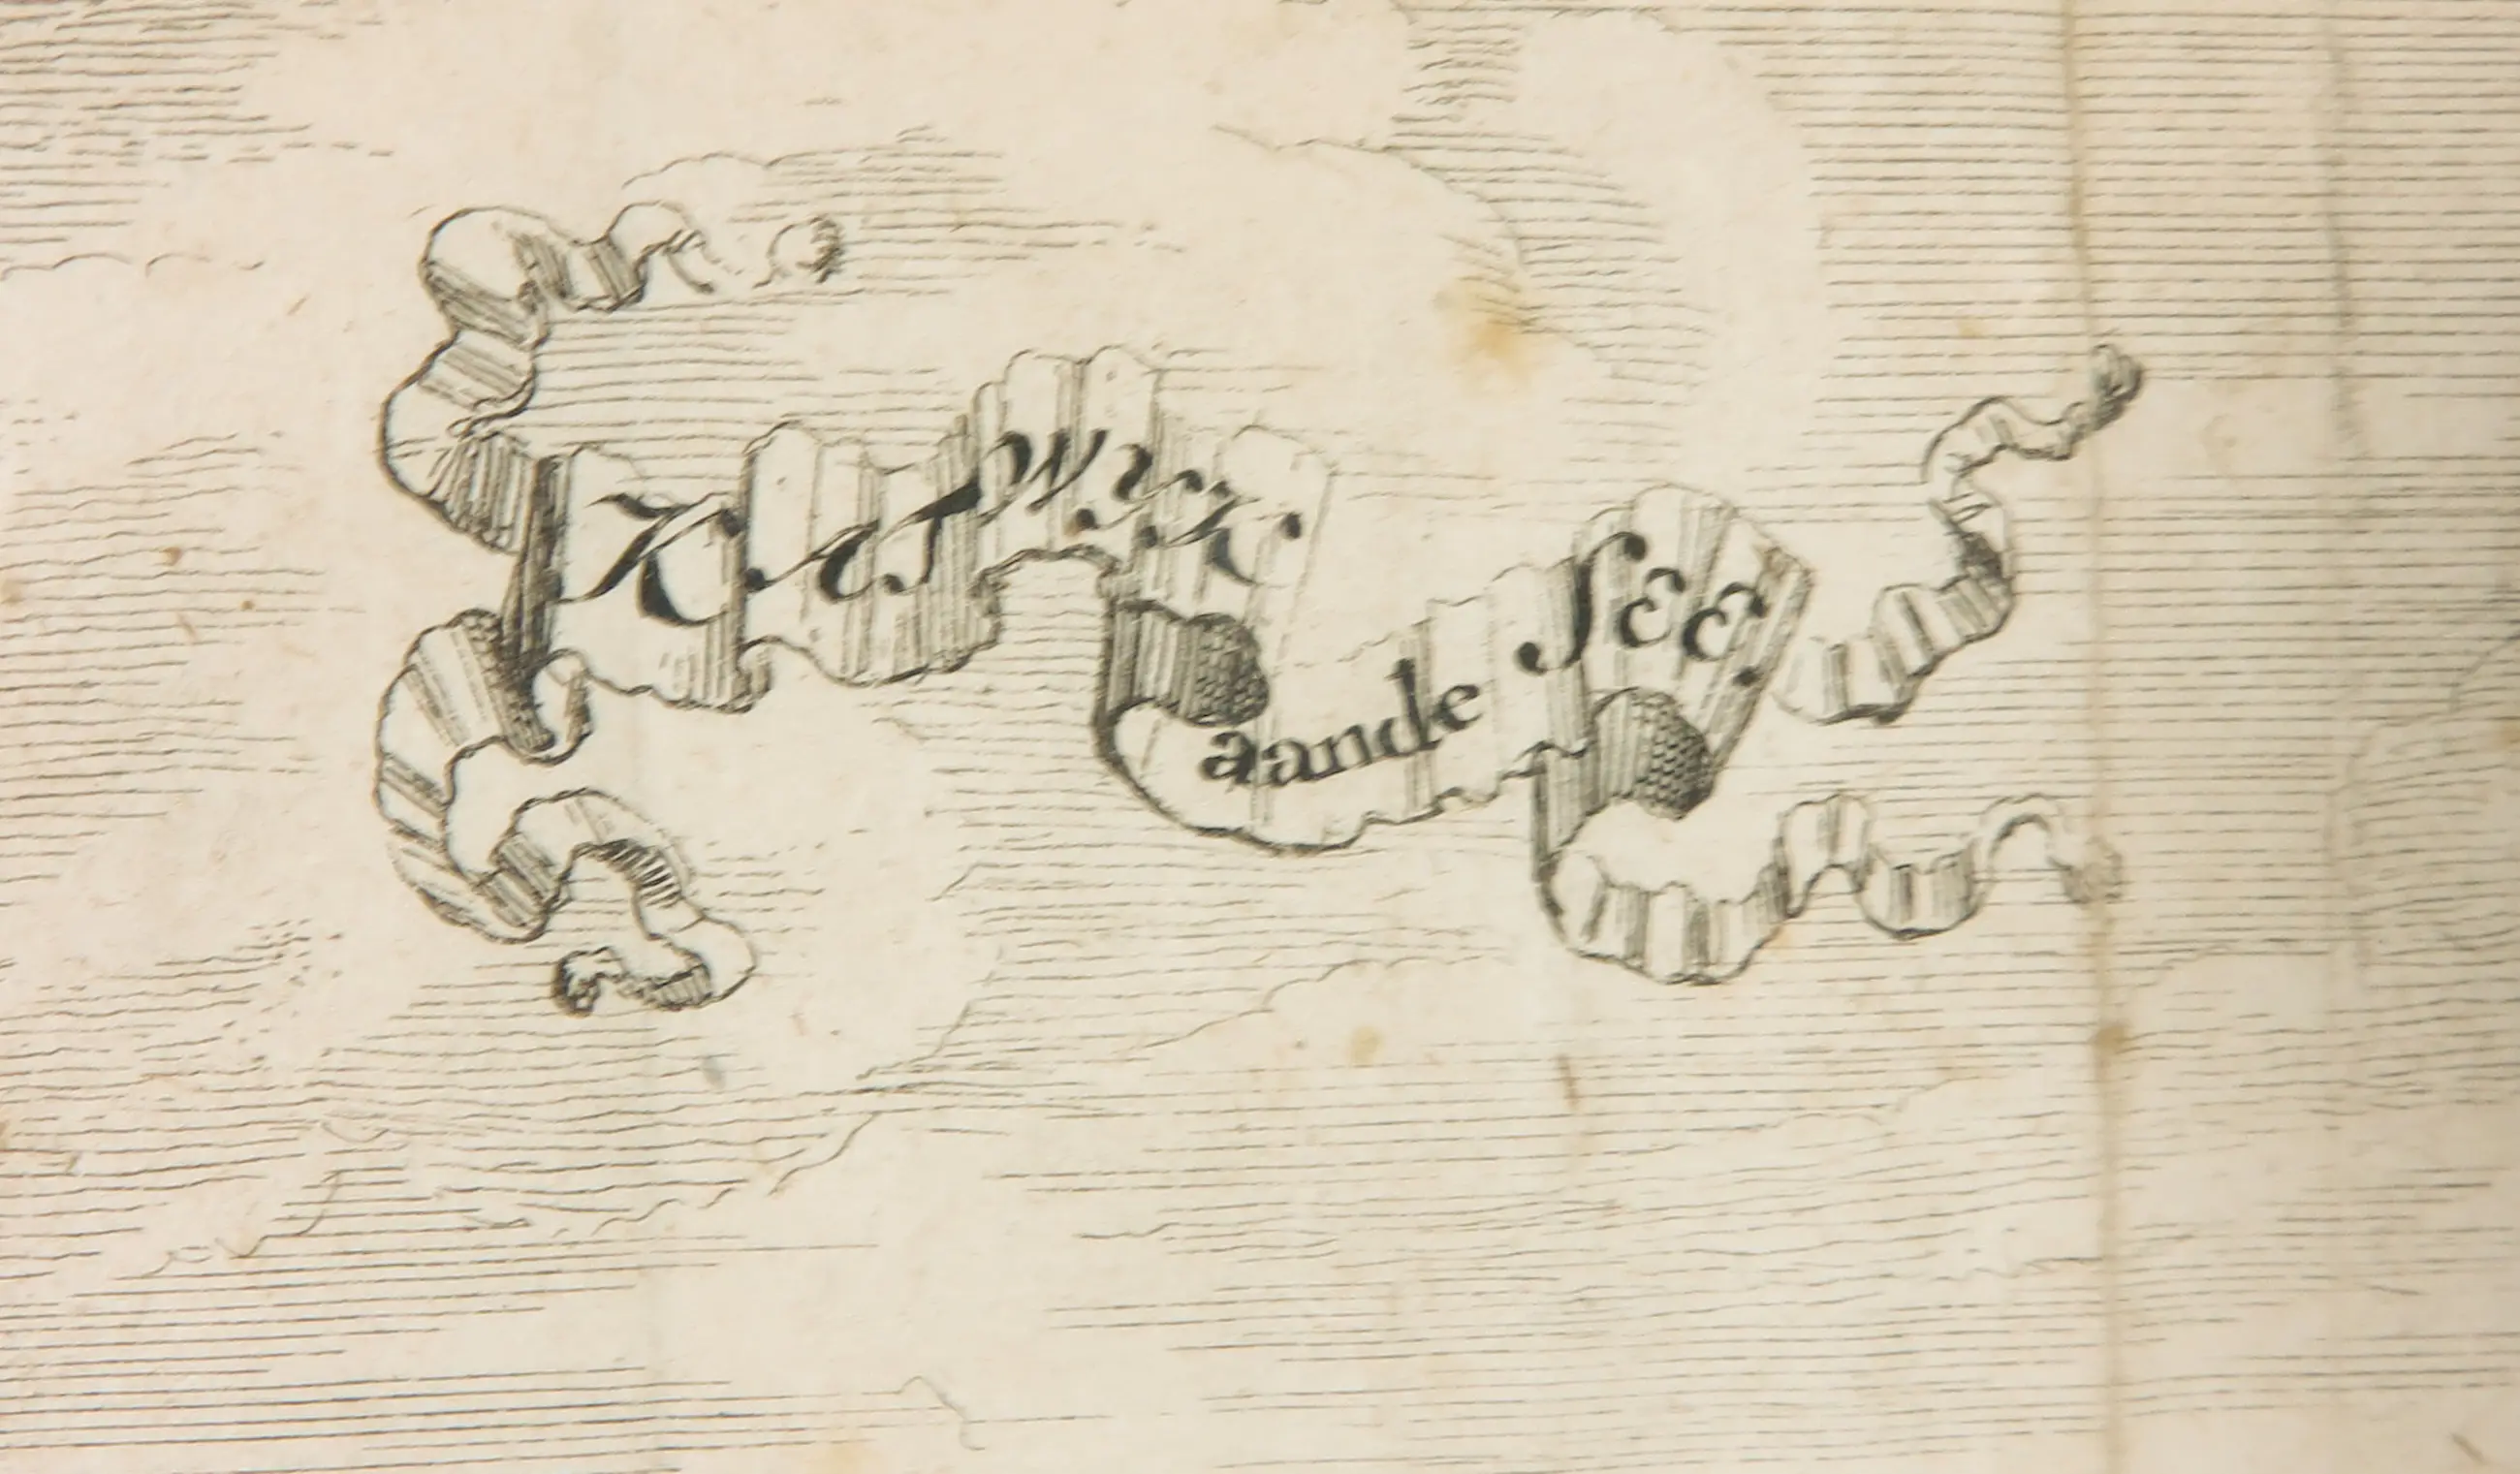 Katwijk.
aande See.